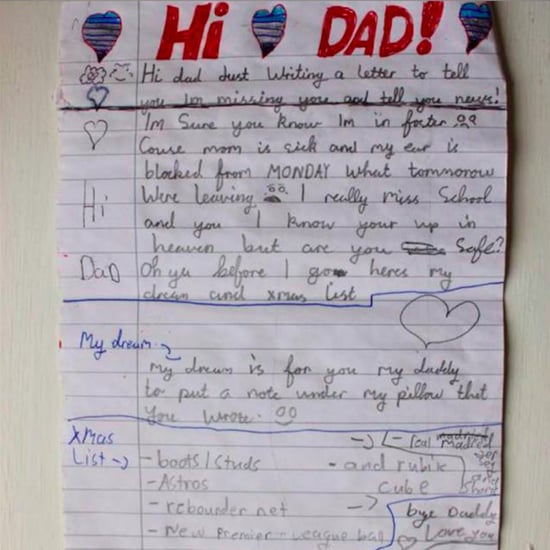 Hi DAD!
Hi dad Just Writing a letter to tell
you Im missing you and tell you news!
Im Sure you know Im in foster
Couse mom is sick and my ear is
blocked from MONDAY What tommorow
Hi
Were leaving I really miss School
and you I know your up in
heaven but are you Safe?
DaD
Oh ya before I go heres my
dream and xmas list
My dream
My dream is for you my daddy
to put a note under my pillow that
you wrote.
xmas
List
- boots/studs
- Astros
- rebounder net
- New Premier League ball
- real madrid
- and rubik
cube
bye Daddy
Love you